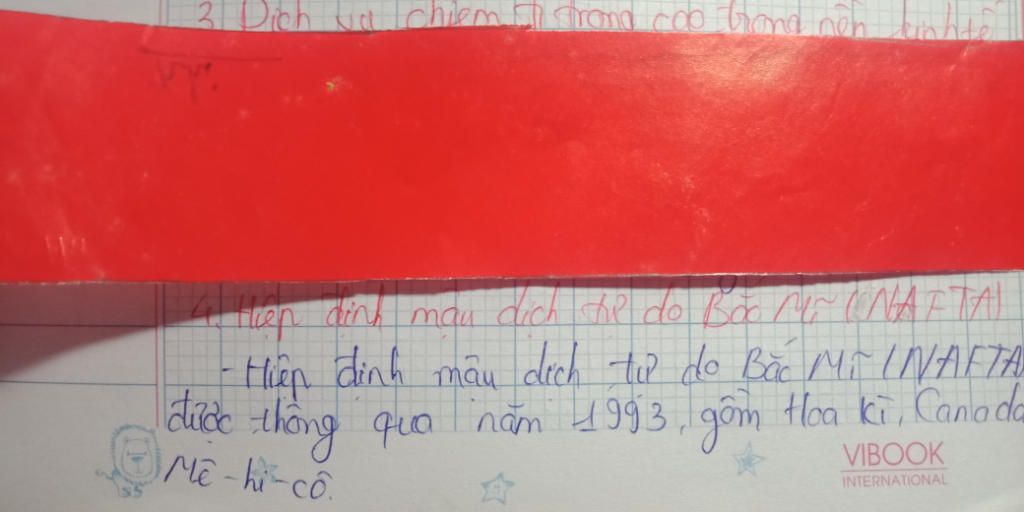 3. Dịch vụ chiếm tỉ trọng cao trong nền kinh tế
4. Hiệp định mậu dịch tự do Bắc Mĩ (NAFTA)
- Hiệp định mậu dịch tự do Bắc Mĩ (NAFTA
được thông qua năm 1993, gồm Hoa kì, Canada
Mê-hi-cô.
VIBOOK
INTERNATIONAL